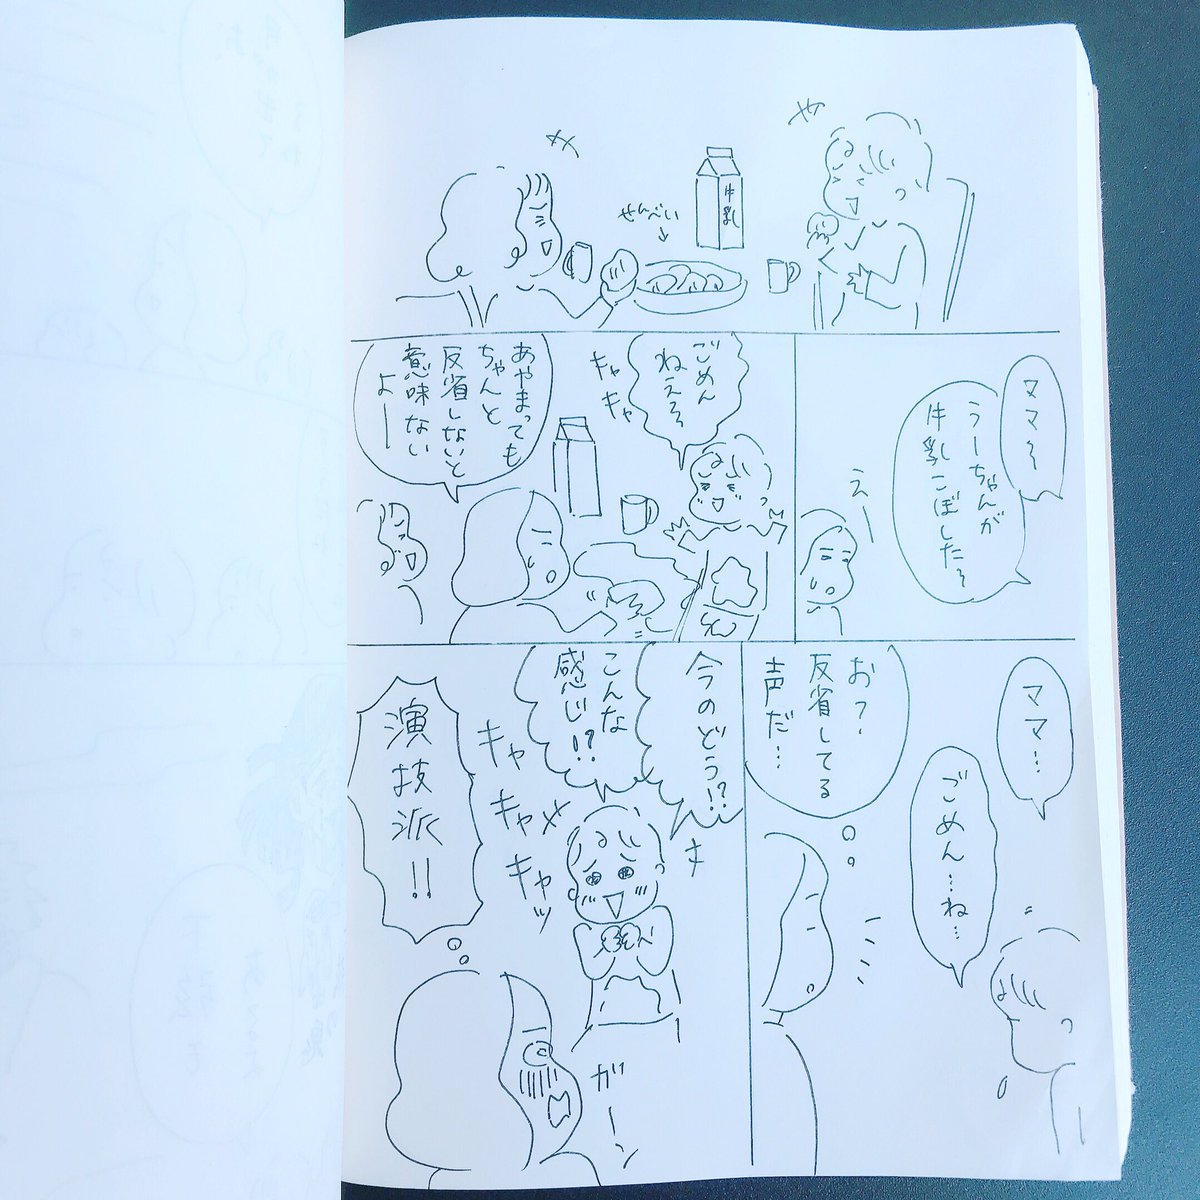 せんべい
牛乳
ママ〜
うーちゃんが
牛乳こぼした〜
えー
ごめん
ねえ〜
キャ
キャ
あやまっても
ちゃんと
反省しないと
意味ない
よー
ママ…
ごめん…ね…
お？
反省してる
声だ…
今のどう!?
こんな
感じ!?
キャ
キャ
キャッ
演技派!!
ガーン